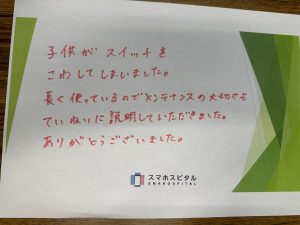 子供がスイッチを
こわしてしまいました。
長く使っているのでメンテナンスの大切さも
ていねいに説明していただきました。
ありがとうございました。
スマホスピタル
SMAHOSPITAL